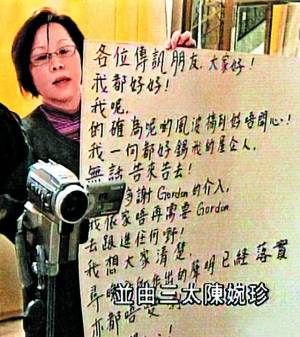 各位傳訊朋友，大家好！
我都好好！
我呢，
的確為呢啲風波搞到好唔開心！
我一向都好錫我的屋企人，
無話告來告去！
多謝Gordon的介入，
我依家唔再需要Gordon
去跟進任何野！
我想大家清楚，
尋晚 出的聲明已經落實
並由三太陳婉珍
亦都唔